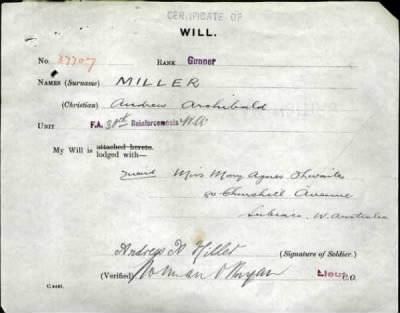 CERTIFICATE OF
WILL.
No. 37707 RANK Gunner
NAMES (Surname) MILLER
(Christian) Andrew Archibald
UNIT F.A. 30th Reinforcements W.A.
My Will is attached hereto.
lodged with—
Miss Mary Agnes Thwaites
80 Churchill Avenue
Subiaco, W. Australia
Andrew A Miller (Signature of Soldier.)
(Verified) Norman Lieut C.O.